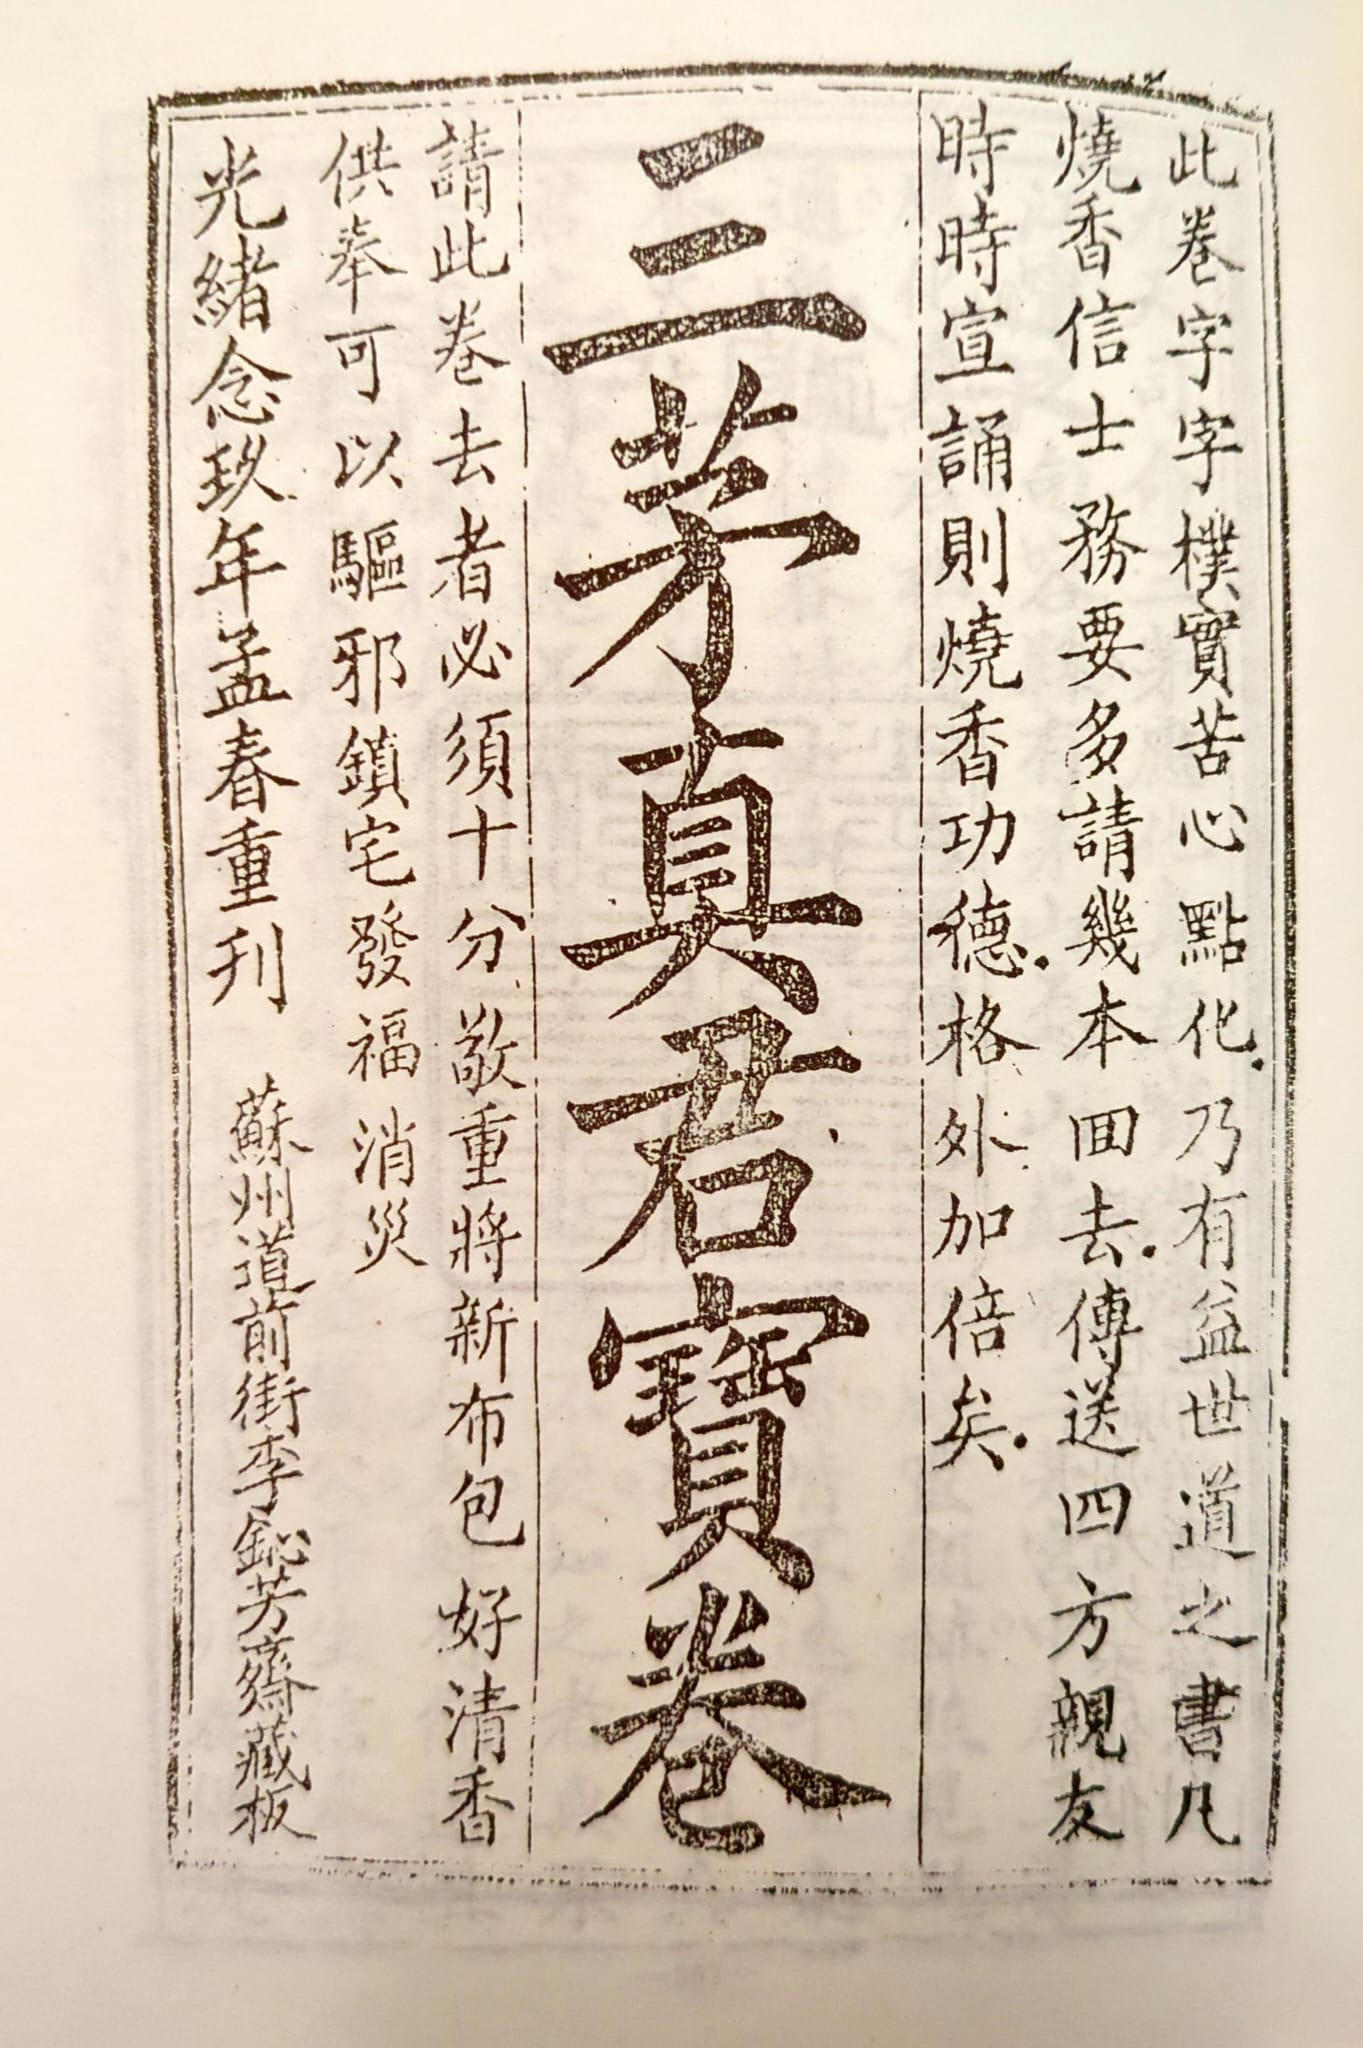 此卷字字樸實苦心點化乃有益世道之書凡
燒香信士務要多請幾本回去傳送四方親友
時時宣誦則燒香功德格外加倍矣
三茅真君寶卷
請此卷去者必須十分敬重將新布包好清香
供奉可以驅邪鎮宅發福消災
光緒念玖年孟春重刊 蘇州道前街李鈊芳齋藏板